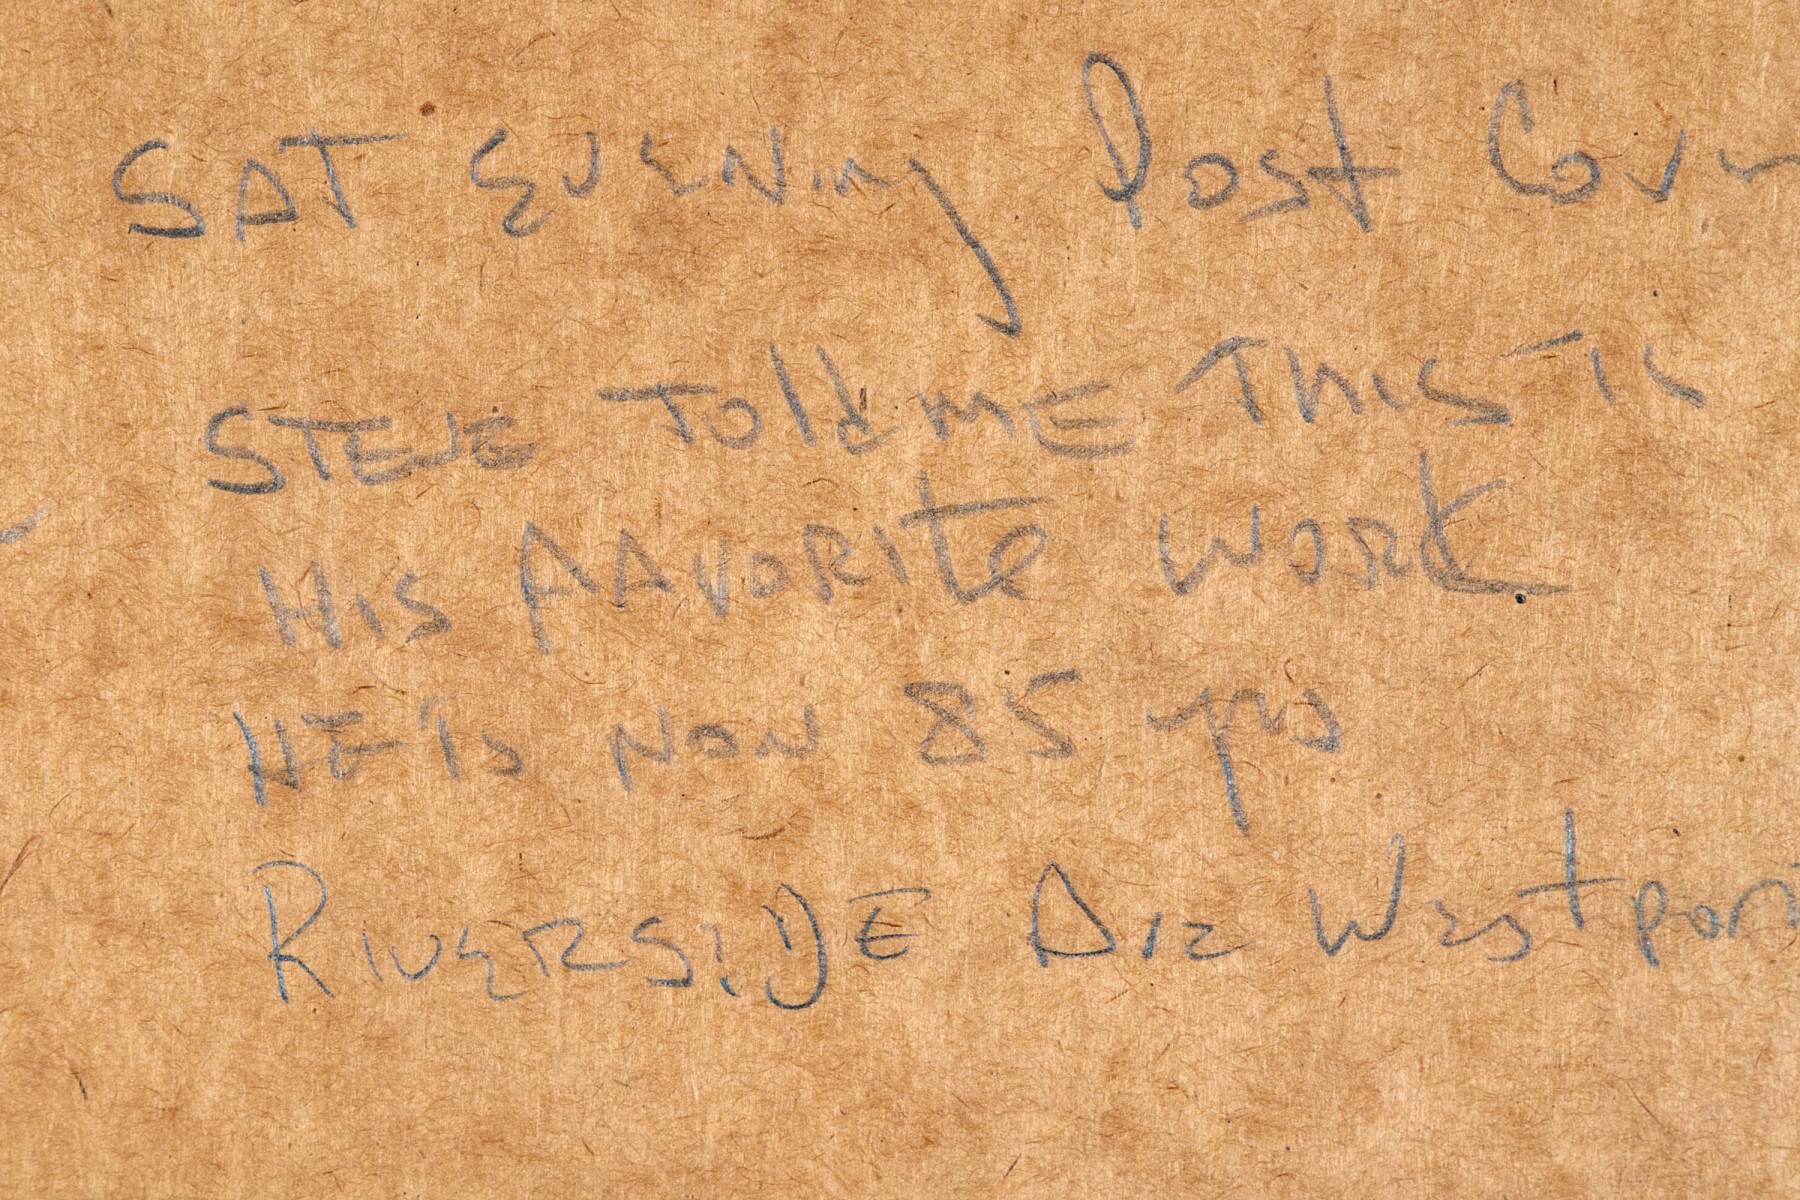 SAT EVENINg Post Cover
STEVE Told ME THIS IS
HIS FAVORITe WORK
HE Is NOW 85 yrs
RIVERSIDE AVE Westport